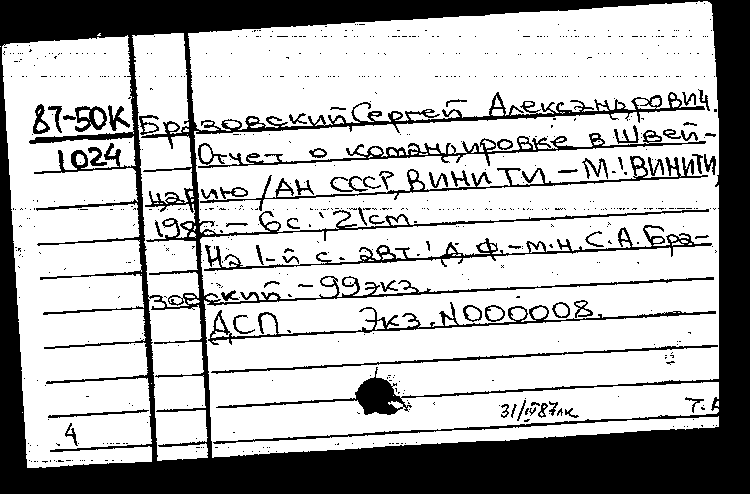 87-50К Бразовский, Сергей Александрович.
1024 Отчет о командировке в Швей-
царию / АН СССР, ВИНИТИ. - М.: ВИНИТИ,
6 с.; 21 cm.
На 1-й с. авт.: д. ф.-м.н. С.А. Бра-
зовский. - 99 экз.
ДСП. Экз. N000008.
4